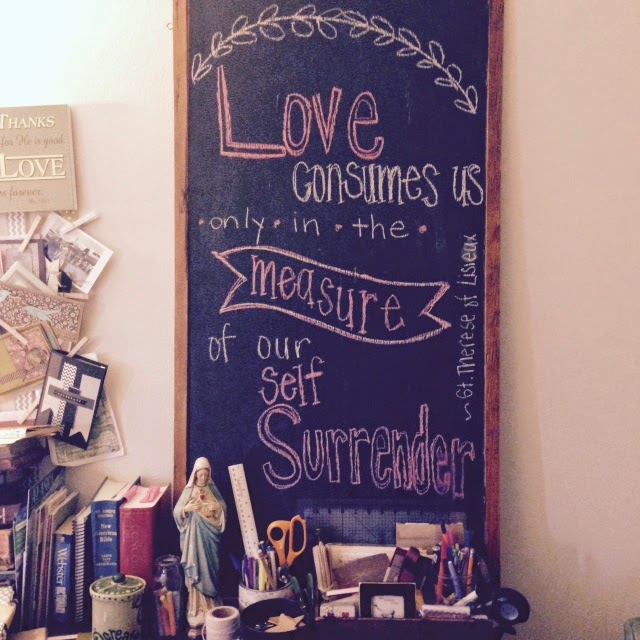 Love
consumes us
only in the
measure
of our
self
Surrender
~ St. Therese of Lisieux
THANKS
for He is good
LOVE
New
American
Bible